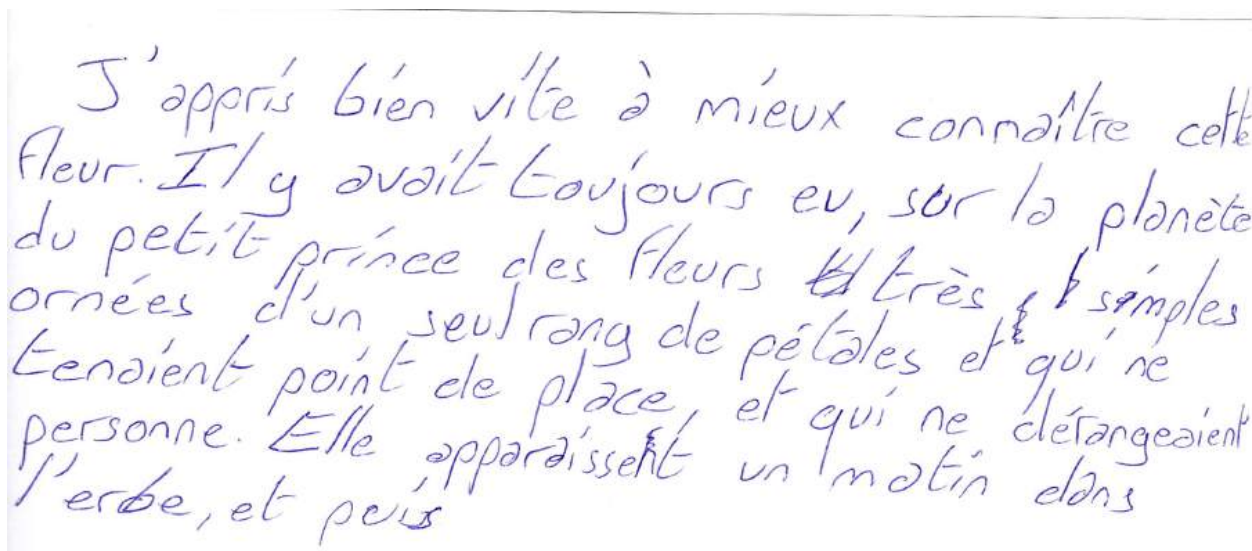 J'appris bien vite à mieux connaître cette
fleur. Il y avait toujours eu, sur la planète
du petit prince des fleurs très simples
ornées d'un seul rang de pétales et qui ne
tenaient point de place, et qui ne dérangeaient
personne. Elle apparaissent un matin dans
l'erbe, et puis